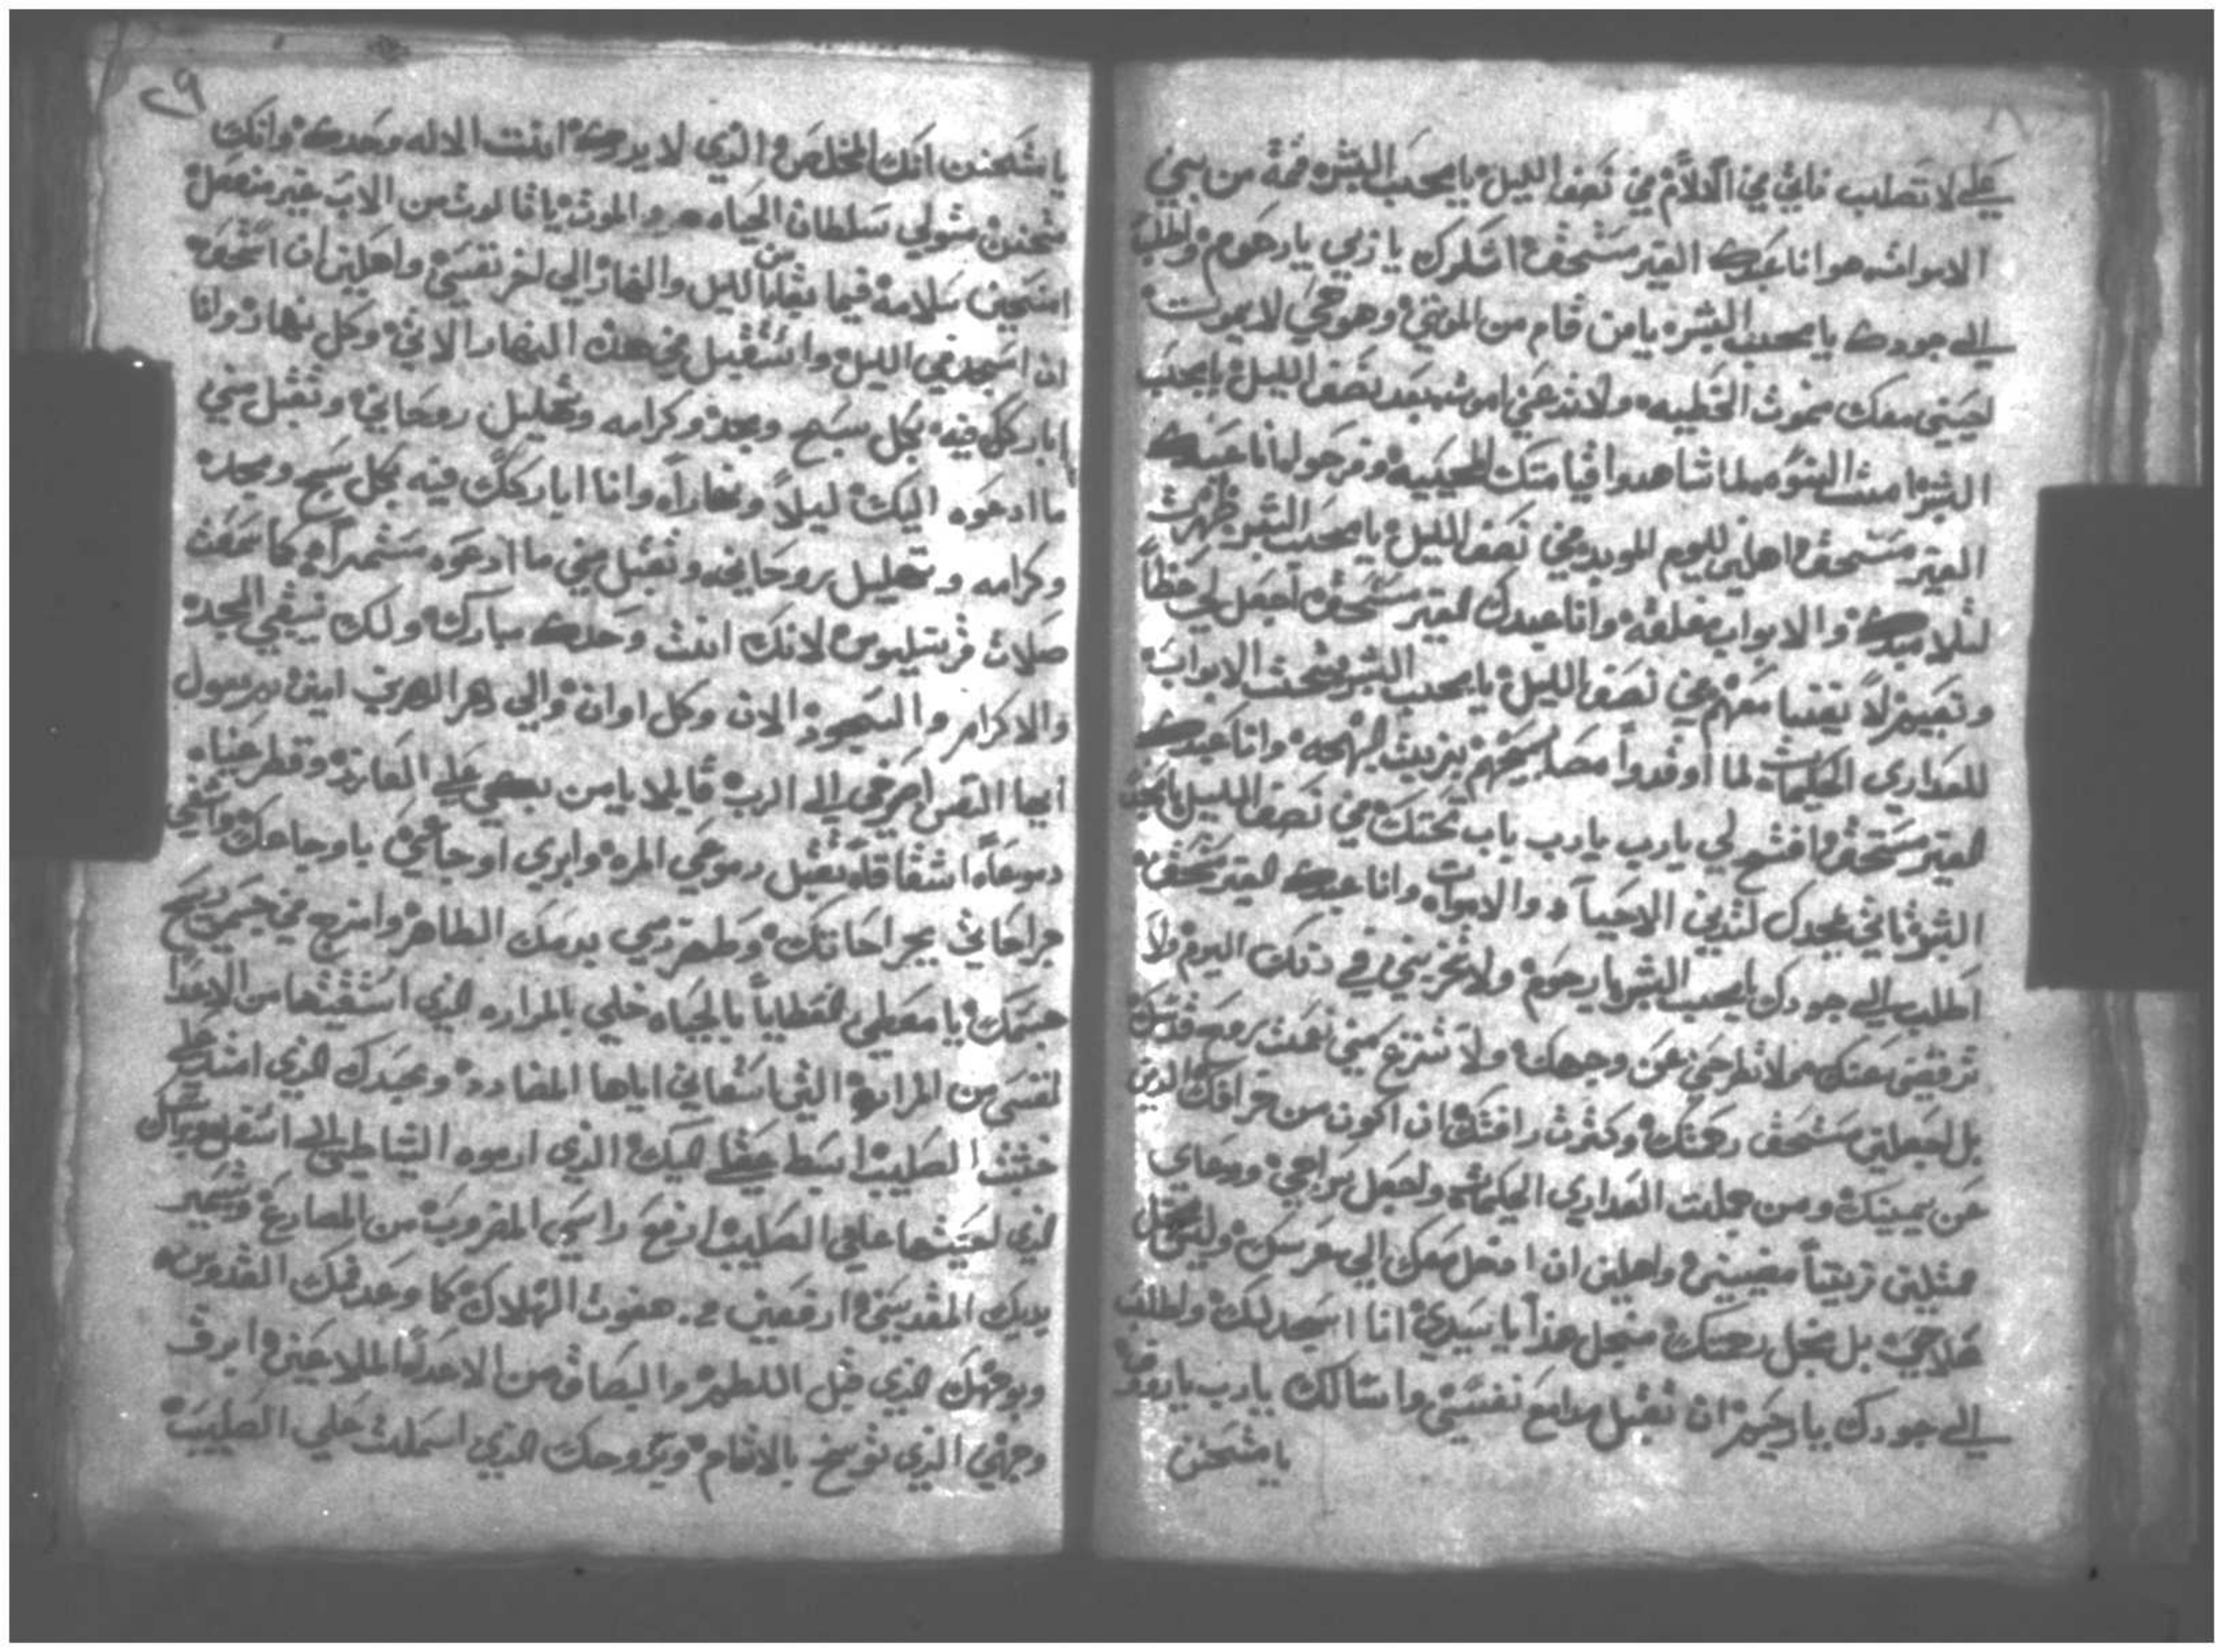 علي لا تصلب فاني في الظلام في نصف الليل يا محب البشر فخة من بيني
الابواب هوانا عبدك الغير مستحق اشكرك يا ربي يا رحوم واطلب
الي جودك يا محب البشر يا من قام من الموتي وهو حي لا يموت
احييني معك بموت الخطيه ولا تدعني اموت بعد نصف الليل يا محب
البشر امنت النسوه لما شاهدوا قيامتك المحييه وفرحوا وانا عبدك
الغير مستحق اهلني لليوم الموبد في نصف الليل يا محب البشر ظهرت
لتلاميدك والابواب مغلقه وانا عبدك الغير مستحق اجعل لي حظاً
ونصيب لا يفنيا معهم في نصف الليل يا محب البشر فتحت الابواب
للعداري الحكيمات لما اوقدوا مصابيحهم بزيت البهجه وانا عبدك
الغير مستحق افتح لي يارب يارب باب تحتك في نصف الليل يا محب
البشر تاتي بمجدك لتدين الاحيا والاموات وانا عبدك الغير مستحق
اطلب الي جودك يا محب البشر يا رحوم ولا تخزيني في دلك اليوم ولا
ترفضني عنك ولا تطرحني عن وجهك ولا تنزع مني نعمت روح قدسك
بل اجعلني مستحق رحمتك وكثرت رافتك ان اكون من خرافك الذين
عن يمينك ومن جملت العداري الحكيمات واجعل سراجي ووعاي
ممتليين زيتاً مضييني واهلني ان ادخل معك الي عرسك وليس لاجل
صلاحي بل لاجل رحمتك منجل هذا يا سيدي انا اسجد لك واطلب
الي جودك يا رحيم ان تقبل مدامع نفسي واسالك يارب يا روف
يا متحنن
٢٩
يا متحنن انك المخلص الذي لا يدرك انت الاله وحدك وانك
متحنن متولي سلطان الحياه والموت يا ثالوث من الاب غير منفصل
امنحني سلامة فيما بقا من الليل والنهار الي اخر نفسي واهلني ان استحق
ان اسجد في الليل واستقبل في هذه النهار الاتي وكل نهار وانا
اباركك فيه بكل سبح ومجد وكرامه وتهليل روحاني وتقبل مني
ما ادعوه اليك ليلاً ونهاراً وانا اباركك فيه بكل سبح ومجد
وكرامه وتهليل روحاني وتقبل مني ما ادعوه مستمراً كما سمعت
صلات قرنيليوس لانك انت وحدك مبارك ولك ينبغي المجد
والاكرام والسجود الان وكل اوان والي دهر الدهرين امين ويرسول
ايها النفس اصرخي الي الرب قايلا يا من بكي علي العازر وقطر عيناه
دموعاً اشفاقاً تقبل دموعي المره وابري اوجاعي باوجاعك واشفي
جراحاتي بجراحاتك وطهر دمي بدمك الطاهر وامزج في جسمي ريح
جسمك يا معطي الخطايا بالحياه خلي بالمراره الذي استقيتها من الاعدا
لنفسي من المراره التي اسقاني اياها المضادد وبجسدك الذي امتد علي
خشبت الصليب ابسط عقلي اليك الذي ارموه الشياطين الي اسفل وبراسك
الذي احنيتها علي الصليب ارفع راسي المضروب من المصارع وبتسمير
يديك المقدسين ارفعني من هفوت الهلاك كما وعد فمك القدوس
وبوجهك الذي قبل اللطم والبصاق من الاعدا الملاعين ابرق
وجهي الذي توسخ بالاثام وبروحك الذي اسلمت علي الصليب